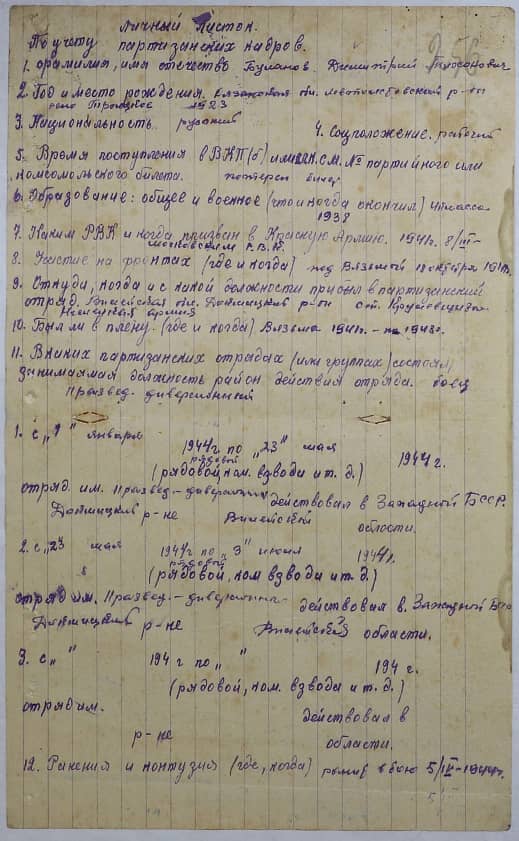 Личный Листок.
По учету партизанских кадров. 256
1. Фамилия, имя отечество Буланов Дмитрий
2. Год и место рождения. обл. р-он
село Троицкое 1923
3. Национальность. руский 4. Соцположение. рабочий
5. Время поступления в ВКП(б) или В.Л.К.С.М. № партийного или
комсомольского билета. потерян билет
6. Образование: общее и военное (что и когда окончил) 4 класса
1938
7. Каким РВК и когда призван в Красную Армию. 1941г. 8/III-
Р.В.К.
8. Участие на фронтах (где и когда) под Вязьмой октября 1941г.
9. Откуда, когда и с какой должности прибыл в партизанский
отряд. Вилейская обл. Докшицкий р-он ст.
Немецкая армия
10. Был ли в плену. (где и когда) Вязьма 1941г. - 1943г.
11. В каких партизанских отрядах (или группах) состоял,
занимаямая должность район действия отряда. боец
Развед. диверсионный
1. с „1" января 1944 г. по „23" мая 1944 г.
рядовой
(рядовой, ком. взвода и т. д.)
отряд им. Развед. - диверсионный действовал в Западной БССР.
Докшицкий р-не Вилейской области.
2. с „23 мая 1944 г. по „3" июля 1944 г.
рядовой
(рядовой, ком взвода и т. д.)
отряд им. Развед. - диверсионный действовал в. Западной БССР
Докшицкий р-не Вилейской области.
3. с „ " 194 г по „ " 194 г.
(рядовой, ком. взвода и т. д.)
отряд им. действовал в
р-не области.
12. Ранения и контузия (где, когда) ранен в бою 5/IV-1944г.